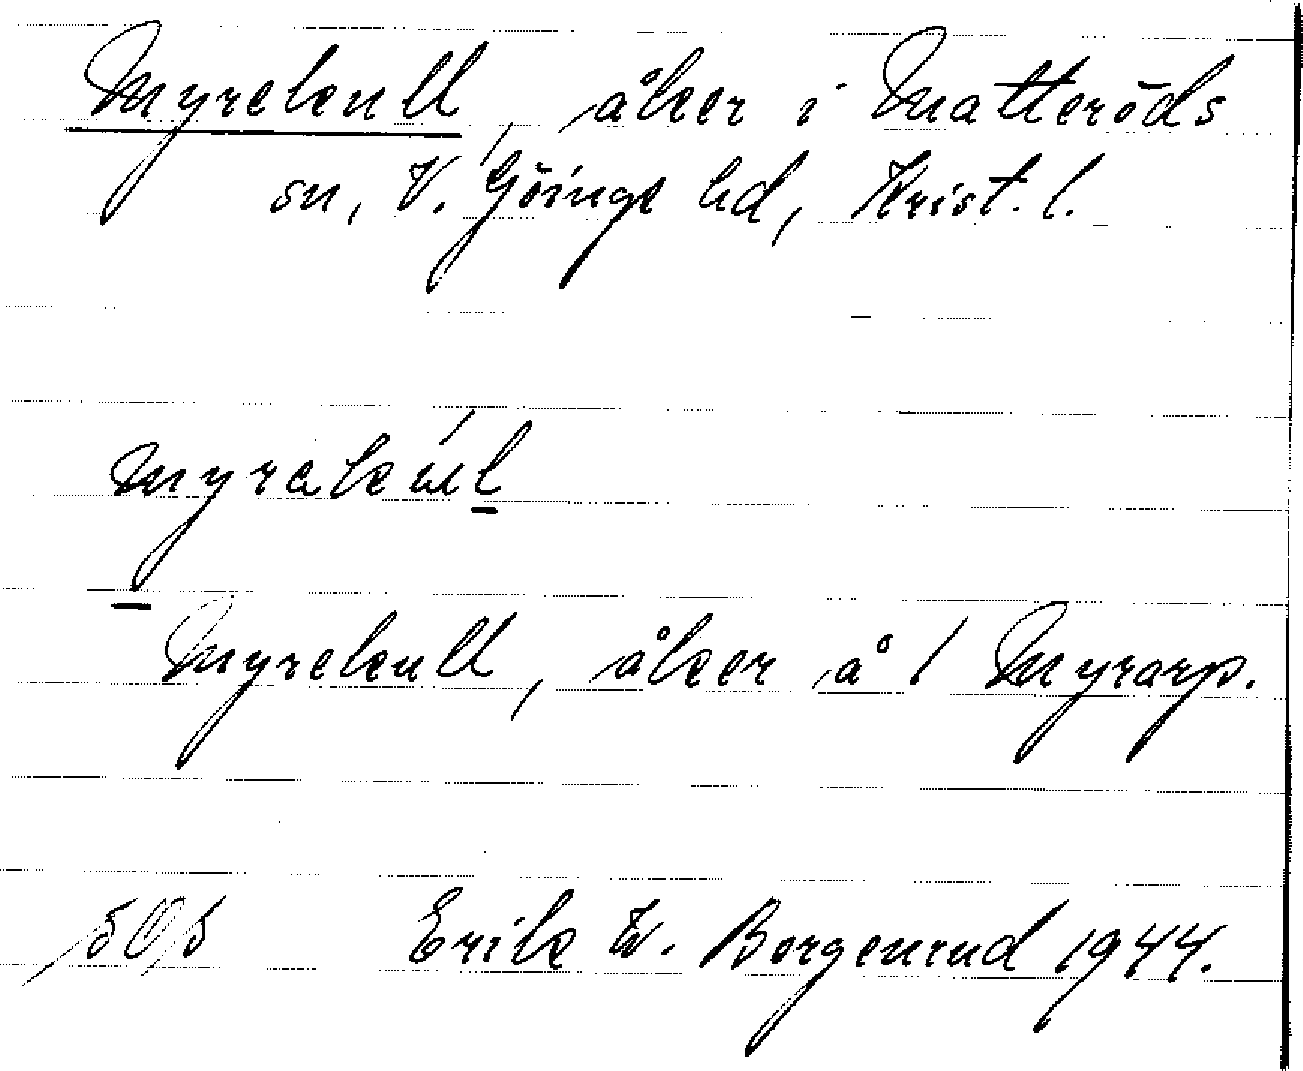 Myrekull, åker i Matteröds
sn, V. Göinge hd, Krist. l.
myrakúl
Myrekull, åker å 1 Myrarp.
505 Erik W. Borgenrud 1944.